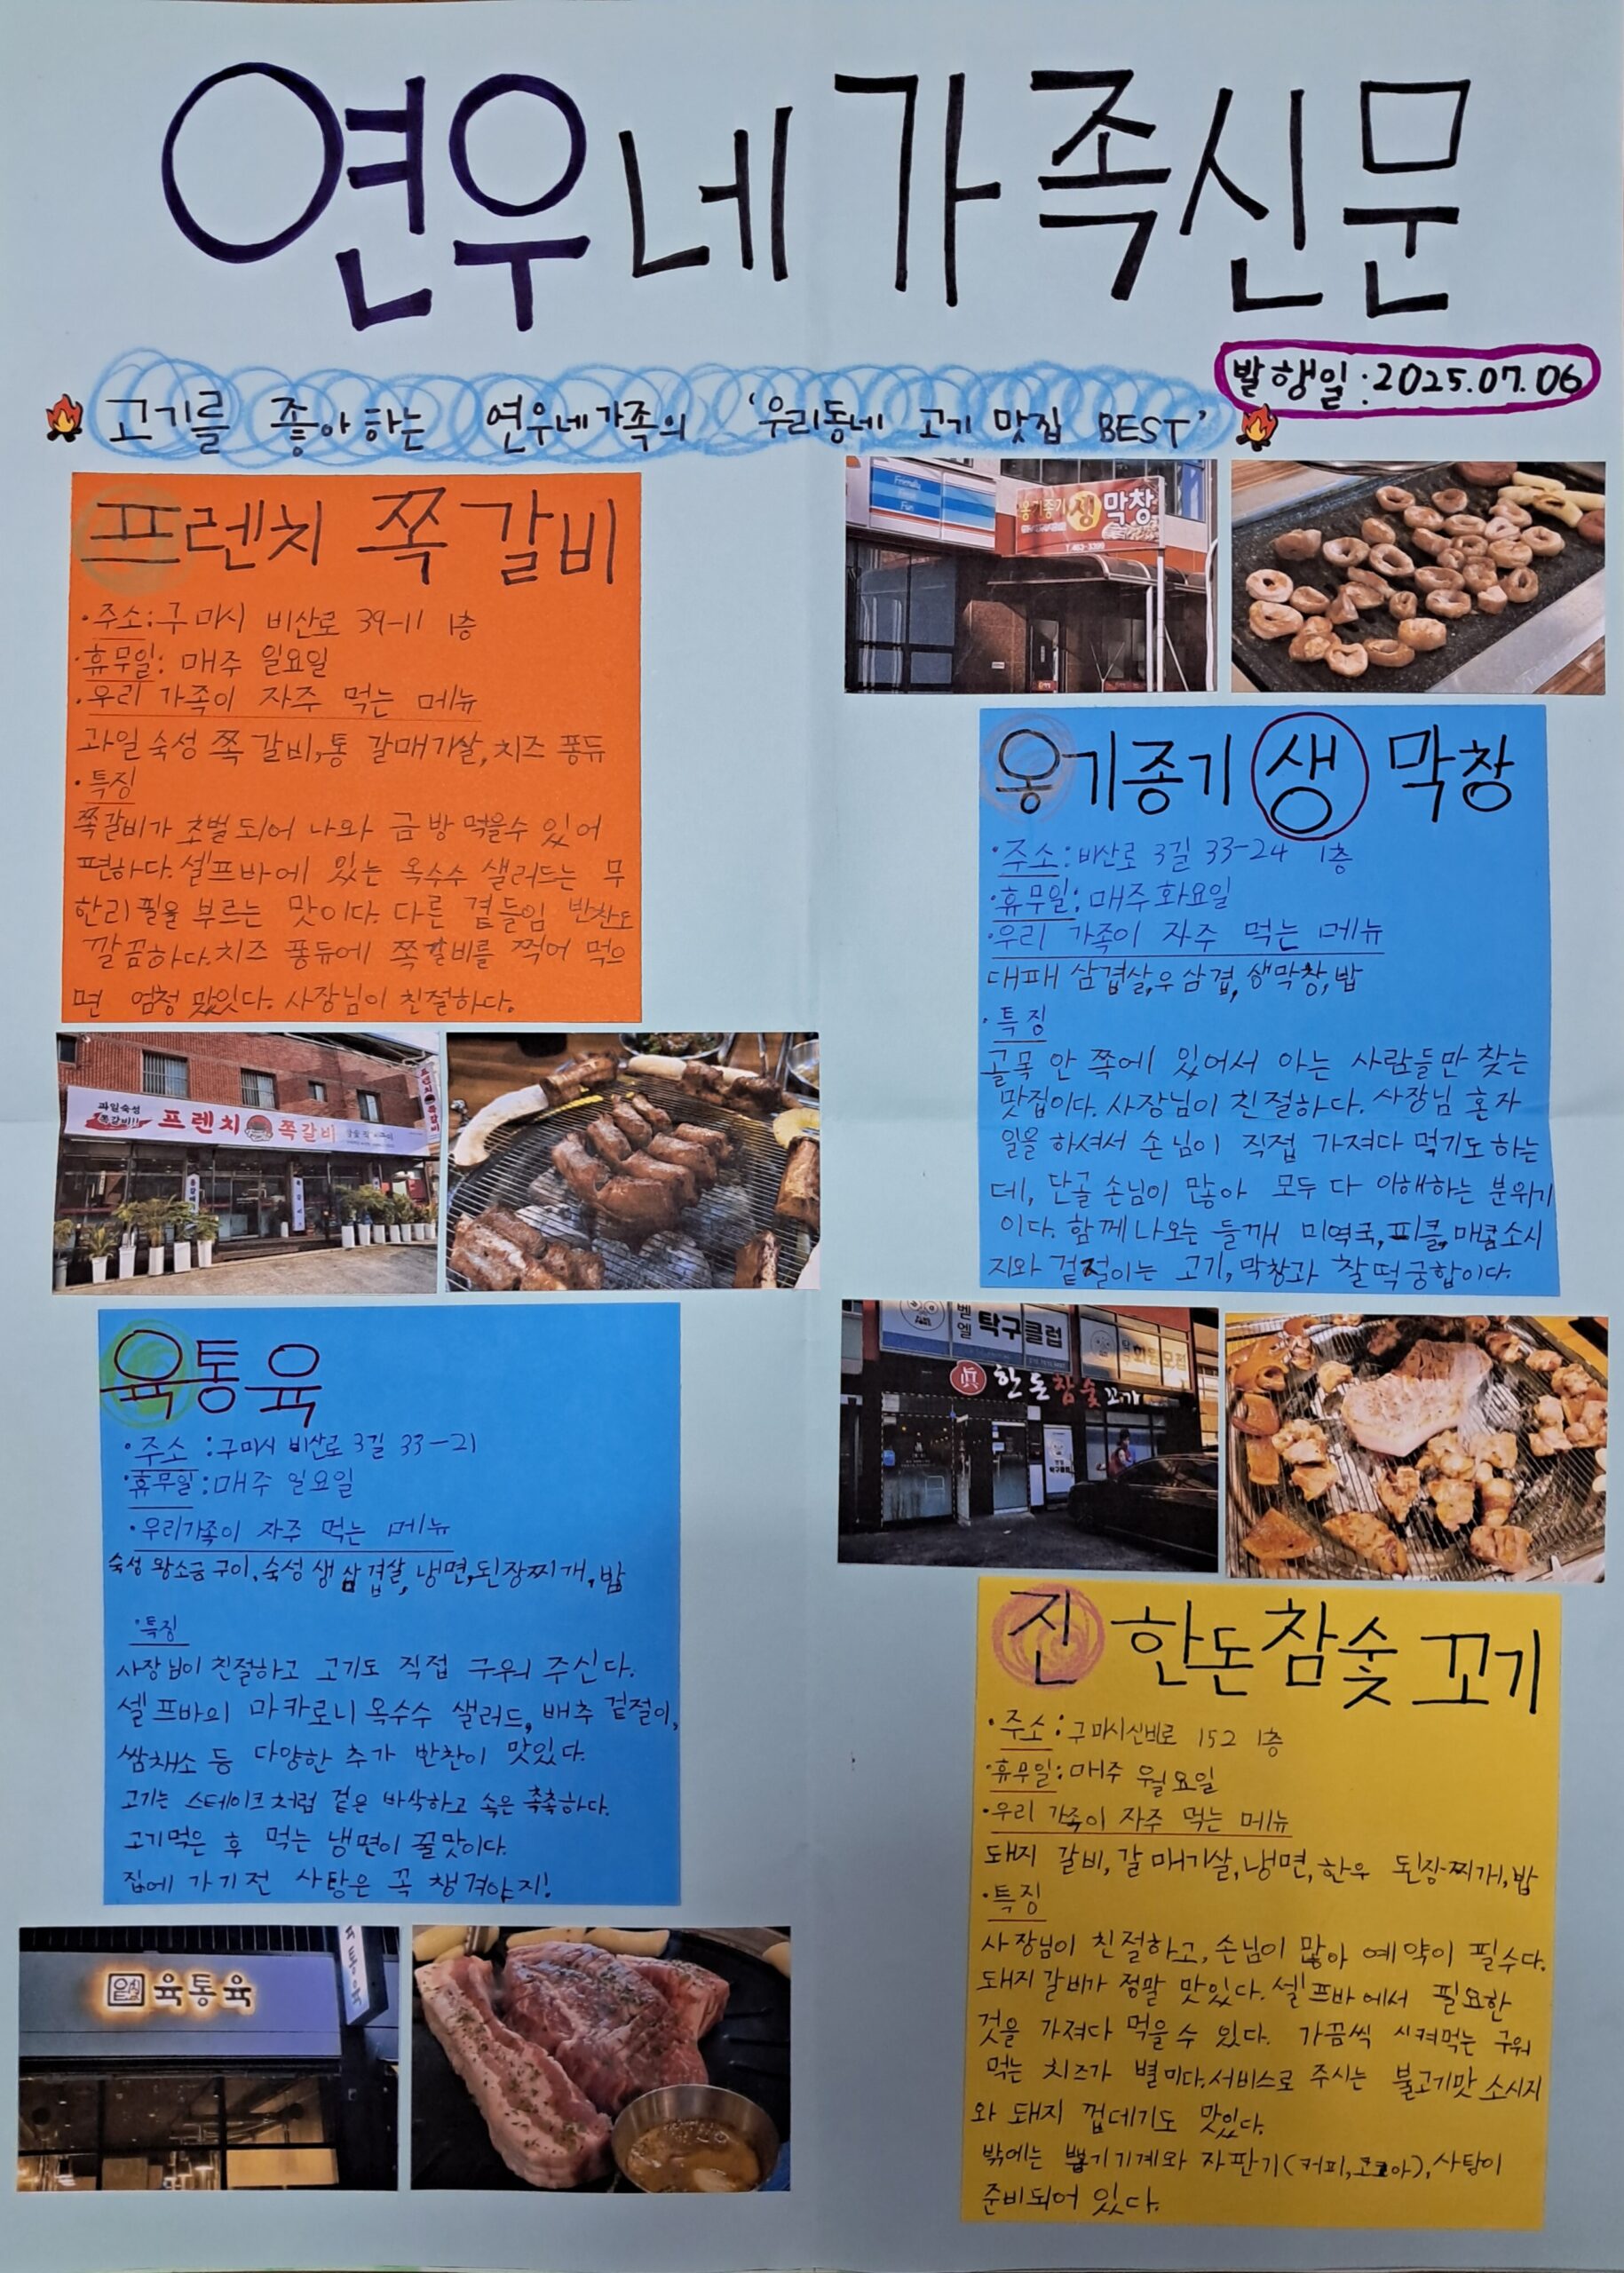 연우네 가족신문
발행일:2025.07.06
고기를 좋아하는 연우네가족의 '우리동네 고기 맛집 BEST'
프렌치 쪽갈비
·주소:구미시 비산로 39-11 1층
·휴무일: 매주 일요일
·우리 가족이 자주 먹는 메뉴
과일숙성 쪽갈비,통 갈매기살,치즈 퐁듀
·특징
쪽갈비가 초벌되어 나와 금방 먹을수 있어
편하다.셀프바에 있는 옥수수 샐러드는 무
한리필을 부르는 맛이다. 다른 곁들임 반찬도
깔끔하다.치즈 퐁듀에 쪽갈비를 찍어 먹으
면 엄청 맛있다. 사장님이 친절하다.
과일숙성
쪽갈비!!
프렌치 쪽갈비
프렌치 쪽갈비
육통육
·주소 :구미시 비산로 3길 33-21
·휴무일:매주 일요일
·우리가족이 자주 먹는 메뉴
숙성 왕소금구이,숙성 생삼겹살,냉면,된장찌개,밥
·특징
사장님이 친절하고 고기도 직접 구워 주신다.
셀프바의 마카로니 옥수수 샐러드, 배추 겉절이,
쌈채소 등 다양한 추가 반찬이 맛있다.
고기는 스테이크처럼 겉은 바삭하고 속은 촉촉하다.
고기먹은 후 먹는 냉면이 꿀맛이다.
집에 가기전 사탕은 꼭 챙겨야지!
육통육
육통육
Friendly
Fresh
Fun
옹기종기 생 막창
T.463-3399
옹기종기 생 막창
·주소:비산로 3길 33-24 1층
·휴무일:매주화요일
·우리 가족이 자주 먹는 메뉴
대패 삼겹살,우삼겹,생막창,밥
·특징
골목 안 쪽에 있어서 아는 사람들만 찾는
맛집이다.사장님이 친절하다. 사장님 혼자
일을 하셔서 손님이 직접 가져다 먹기도 하는
데, 단골 손님이 많아 모두 다 이해하는 분위기
이다. 함께 나오는 들깨 미역국,피클,매콤소시
지와 겉절이는 고기,막창과 찰떡궁합이다.
벤엘
탁구클럽
회원모집
眞 한돈참숯꼬기
탁구클럽
진 한돈참숯꼬기
·주소:구미시신비로 152 1층
·휴무일:매주 월요일
·우리 가족이 자주 먹는 메뉴
돼지 갈비,갈매기살,냉면,한우 된장찌개,밥
·특징
사장님이 친절하고,손님이 많아 예약이 필수다.
돼지갈비가 정말 맛있다.셀프바에서 필요한
것을 가져다 먹을수 있다. 가끔씩 시켜먹는 구워
먹는 치즈가 별미다.서비스로 주시는 불고기맛 소시지
와 돼지 껍데기도 맛있다.
밖에는 뽑기기계와 자판기(커피,코코아),사탕이
준비되어 있다.